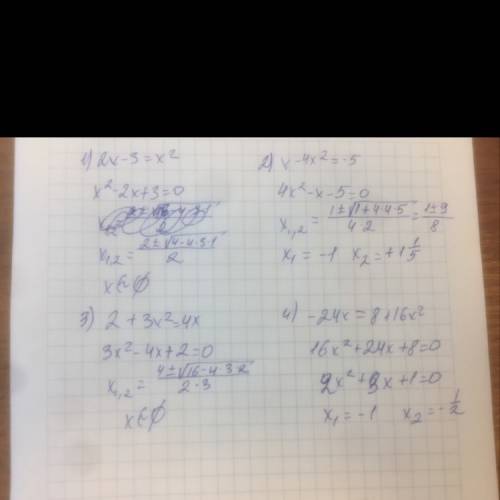 1) 2x-3=x²
x²-2x+3=0
x₁,₂=(2±√(4-4·3·1))/2
x∈∅
2) x-4x²=-5
4x²-x-5=0
x₁,₂=(1±√(1+4·4·5))/(4·2)=(1±9)/8
x₁=-1 x₂=+1 1/5
3) 2+3x²=4x
3x²-4x+2=0
x₁,₂=(4±√(16-4·3·2))/(2·3)
x∈∅
4) -24x=8+16x²
16x²+24x+8=0
2x²+3x+1=0
x₁=-1 x₂=-1/2